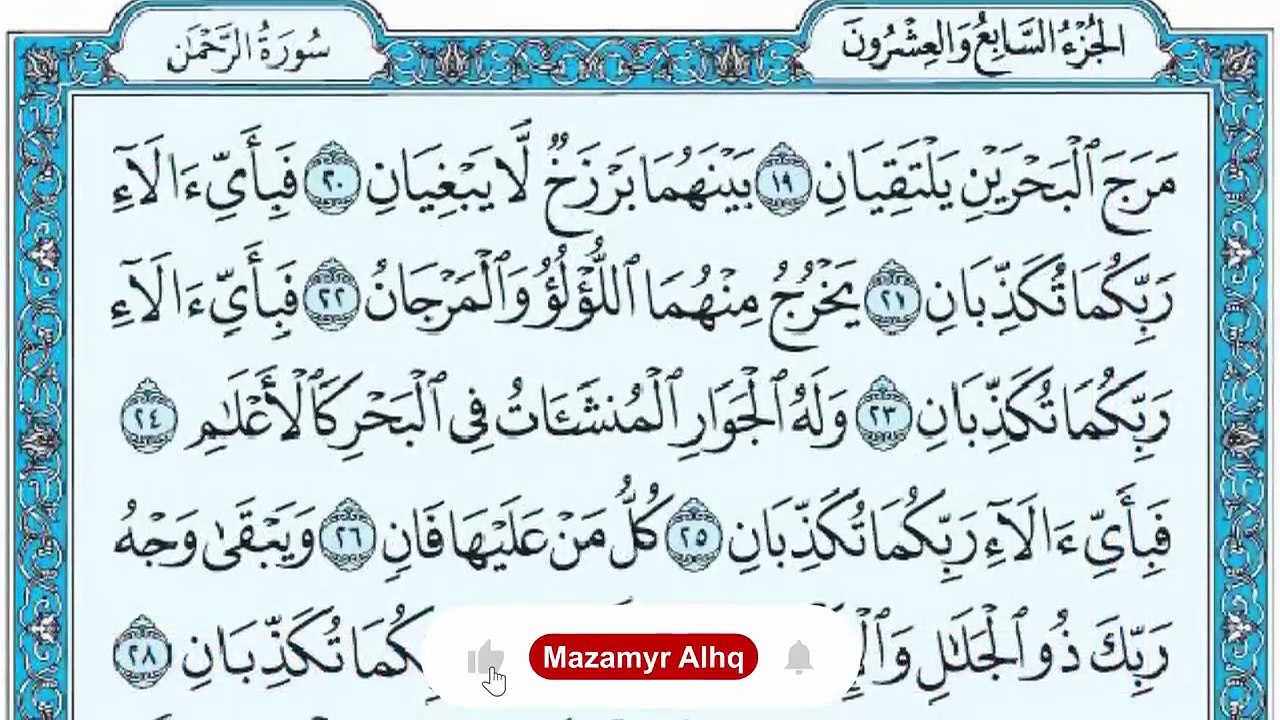 الجُزْءُ السَّابِعُ وَالعِشْرُونَ
سُورَةُ الرَّحْمَٰن
مَرَجَ ٱلْبَحْرَيْنِ يَلْتَقِيَانِ ١٩ بَيْنَهُمَا بَرْزَخٌ لَّا يَبْغِيَانِ ٢٠ فَبِأَيِّ ءَالَآءِ
رَبِّكُمَا تُكَذِّبَانِ ٢١ يَخْرُجُ مِنْهُمَا ٱللُّؤْلُؤُ وَٱلْمَرْجَانُ ٢٢ فَبِأَيِّ ءَالَآءِ
رَبِّكُمَا تُكَذِّبَانِ ٢٣ وَلَهُ ٱلْجَوَارِ ٱلْمُنشَـَٔاتُ فِى ٱلْبَحْرِ كَٱلْأَعْلَٰمِ ٢٤
فَبِأَيِّ ءَالَآءِ رَبِّكُمَا تُكَذِّبَانِ ٢٥ كُلُّ مَنْ عَلَيْهَا فَانٍ ٢٦ وَيَبْقَىٰ وَجْهُ
رَبِّكَ ذُو ٱلْجَلَٰلِ تُكَذِّبَانِ ٢٨
Mazamyr Alhq